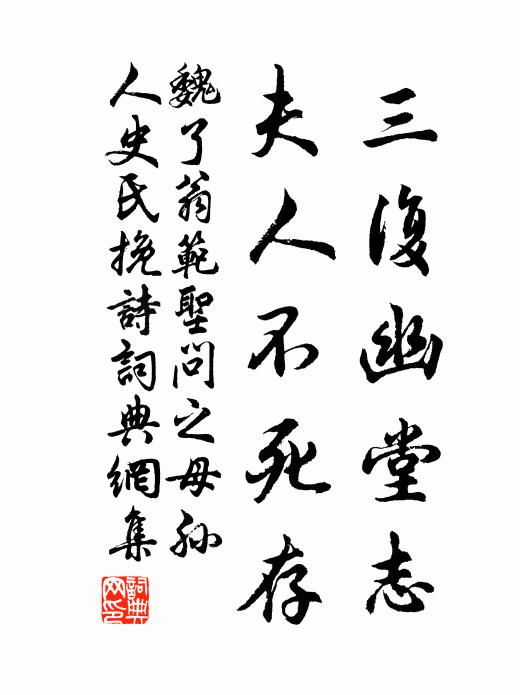 三復幽堂志
夫人不死存
魏了翁範聖問之母孫
人史氏挽詩詞典網集
詞典網印